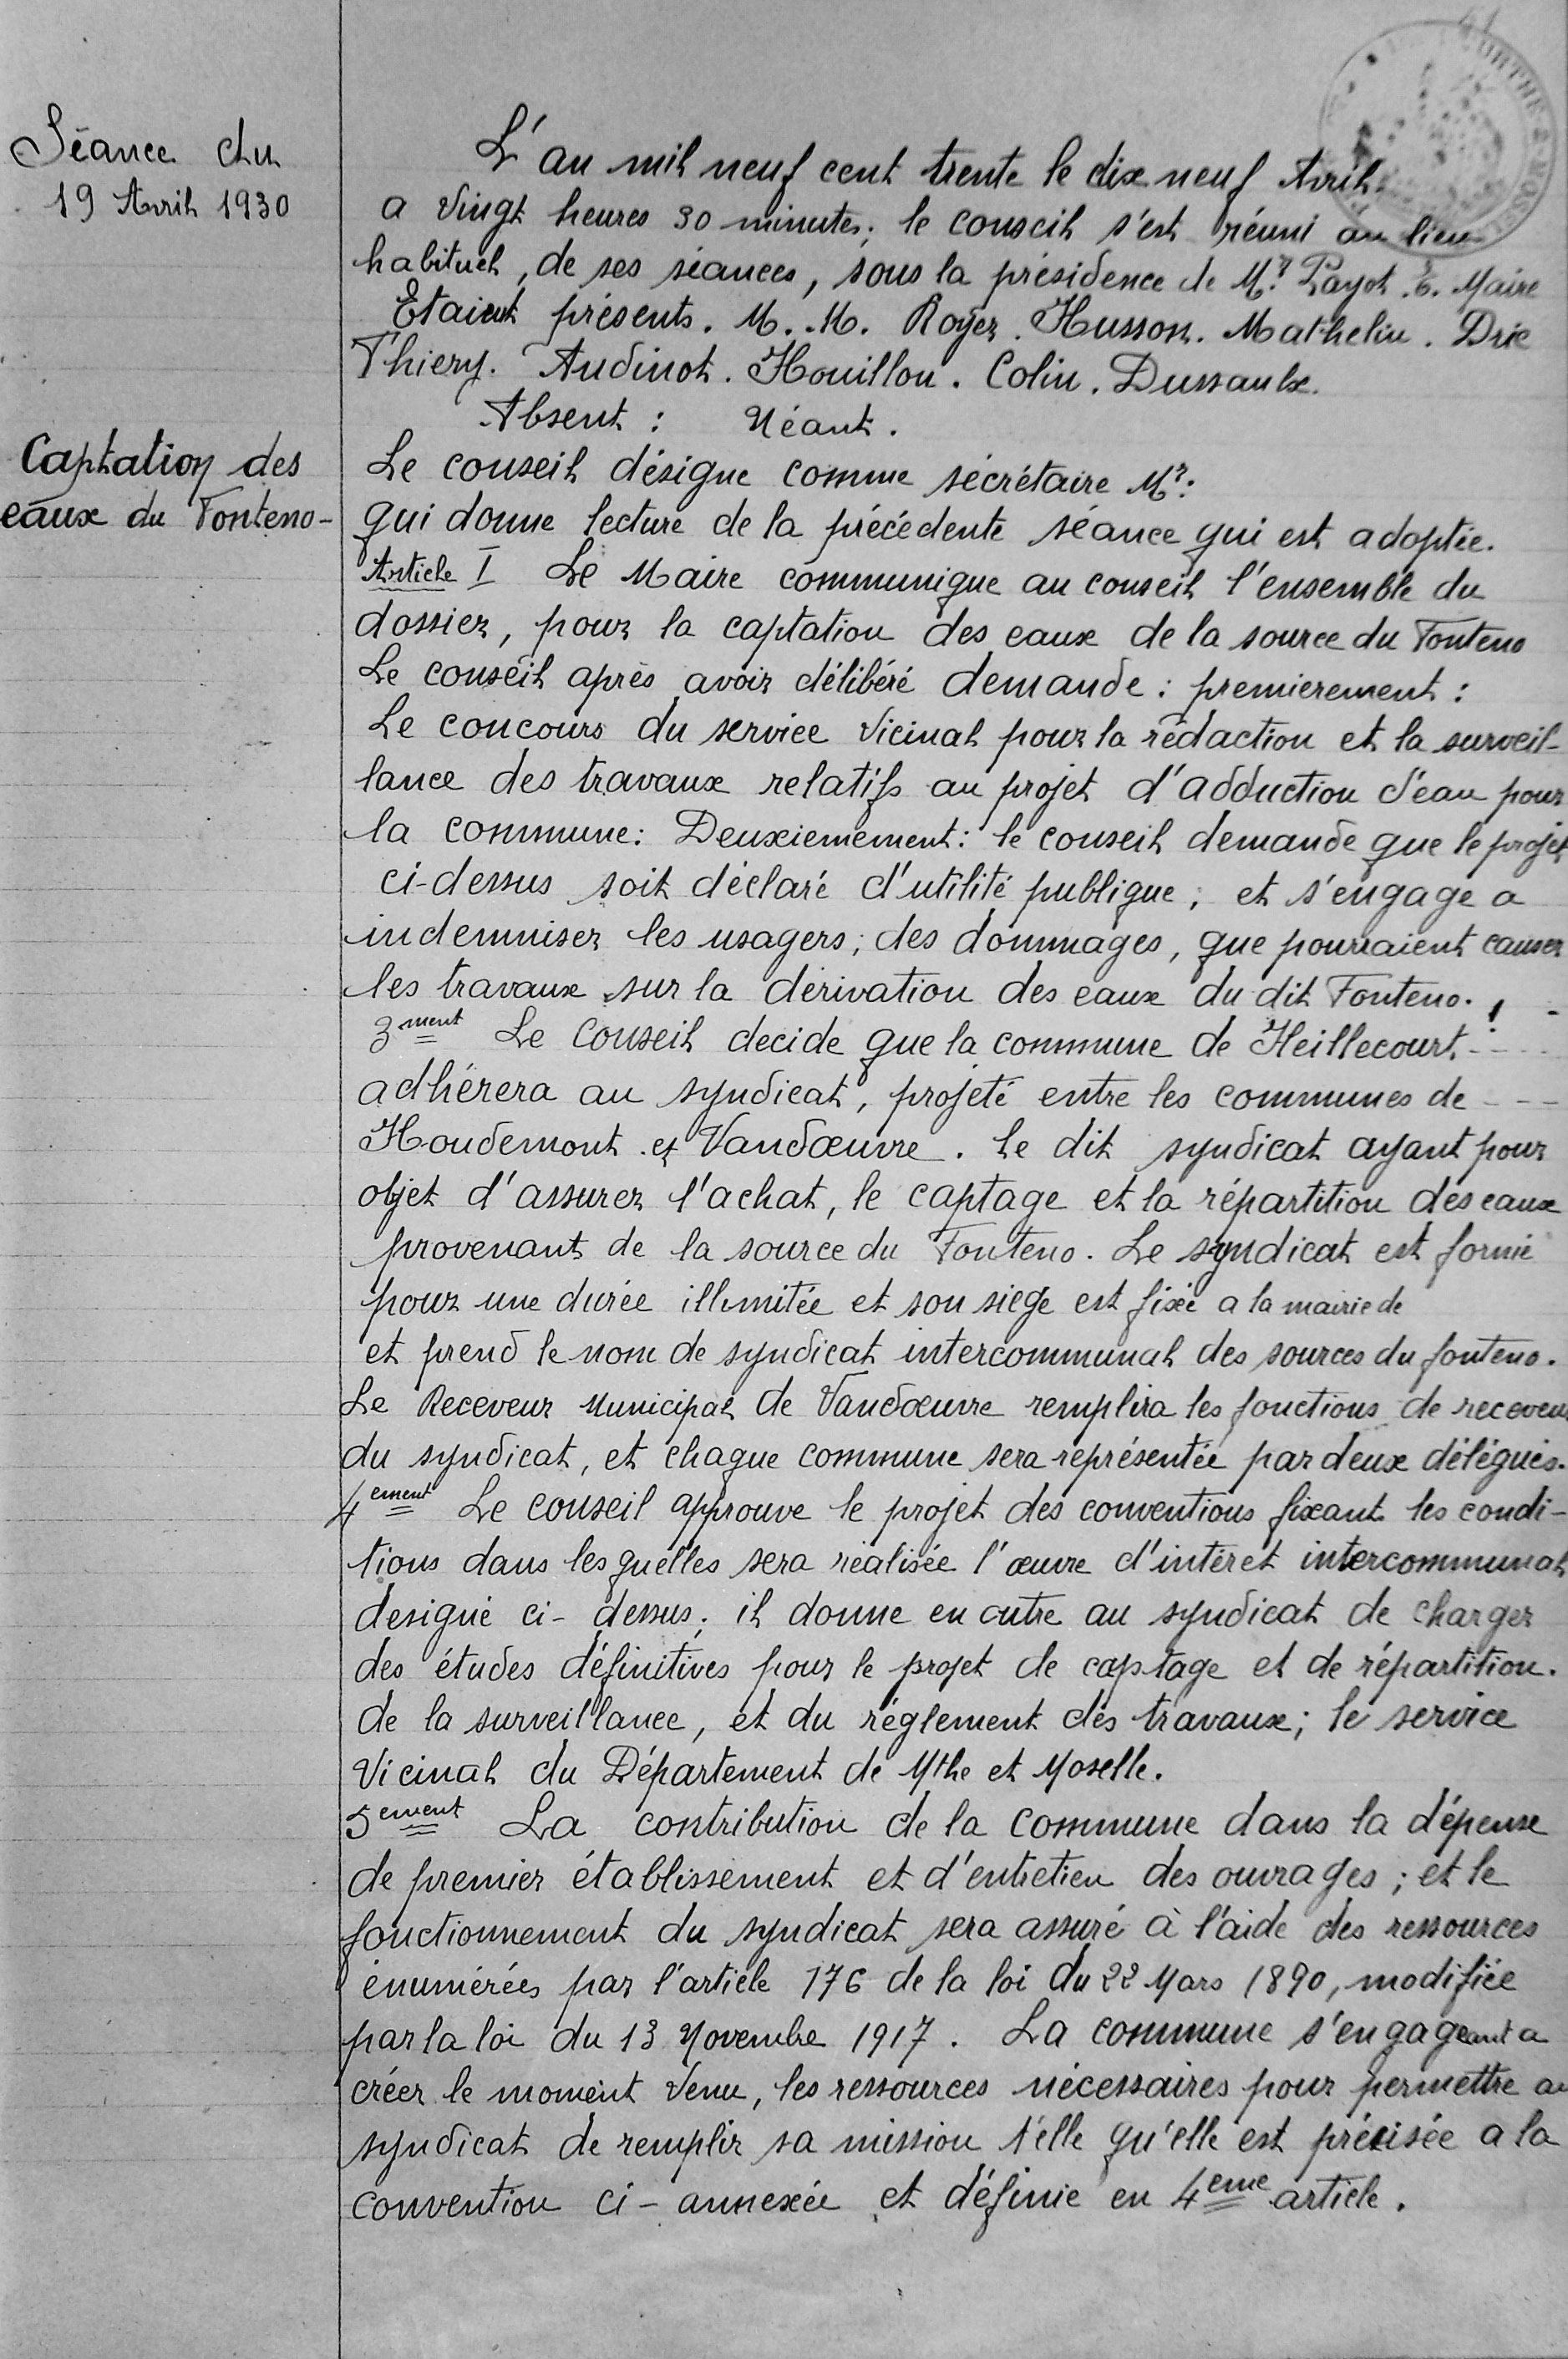 41
Séance du
19 Avril 1930
L'an mil neuf cent trente le dix neuf Avril
a Vingt heures 30 minutes; le conseil s'est réuni au lieu
habituel, de ses séances, sous la présidence de Mr. Payot. E. Maire
Etaient présents. M. M. Royer. Husson. Mathelin. Drie
Thiery. Audinot. Houillon. Colin. Dussaulx.
Absent : Néant.
Captation des
eaux du Fonteno-
Le conseil désigne comme sécrétaire Mr:
qui donne lecture de la précédente séance qui est adoptée.
Article I Le Maire communique au conseil l'ensemble du
dossier, pour la captation des eaux de la source du Fonteno
Le conseil après avoir délibéré demande : premierement :
Le concours du service Vicinal pour la rédaction et la surveil-
lance des travaux relatifs au projet d'adduction d'eau pour
la commune: Deuxiemement: le conseil demande que le projet
ci-dessus soit déclaré d'utilité publique; et s'engage a
indemniser les usagers; des dommages, que pourraient causer
les travaux sur la dérivation des eaux du dit Fonteno.
3ment Le Conseil decide que la commune de Heillecourt
adhérera au syndicat, projeté entre les communes de
Houdemont et Vandœuvre. Le dit syndicat ayant pour
objet d'assurer l'achat, le captage et la répartition des eaux
provenant de la source du Fonteno. Le syndicat est formé
pour une durée illimitée et son siege est fixé a la mairie de
et prend le nom de syndicat intercommunal des sources du fonteno.
Le Receveur Municipal de Vandœuvre remplira les fonctions de receveur
du syndicat, et chaque commune sera représentée par deux délégués.
4ement Le conseil approuve le projet des conventions fixant les condi-
tions dans lesquelles sera réalisée l'œuvre d'intéret intercommunal
designé ci-dessus; il donne en outre au syndicat de charger
des études définitives pour le projet de captage et de répartition.
de la surveillance, et du réglement des travaux; le service
Vicinal du Département de Mthe et Moselle.
5ement La contribution de la commune dans la dépense
de premier établissement et d'entretien des ouvrages; et le
fonctionnement du syndicat sera assuré à l'aide des ressources
énumérées par l'article 176 de la loi du 22 Mars 1890, modifiée
par la loi du 13 Novembre 1917. La commune s'engageant a
créer le moment venu, les ressources nécessaires pour permettre au
syndicat de remplir sa mission t'elle qu'elle est précisée a la
convention ci-annexée et définie en 4eme article.